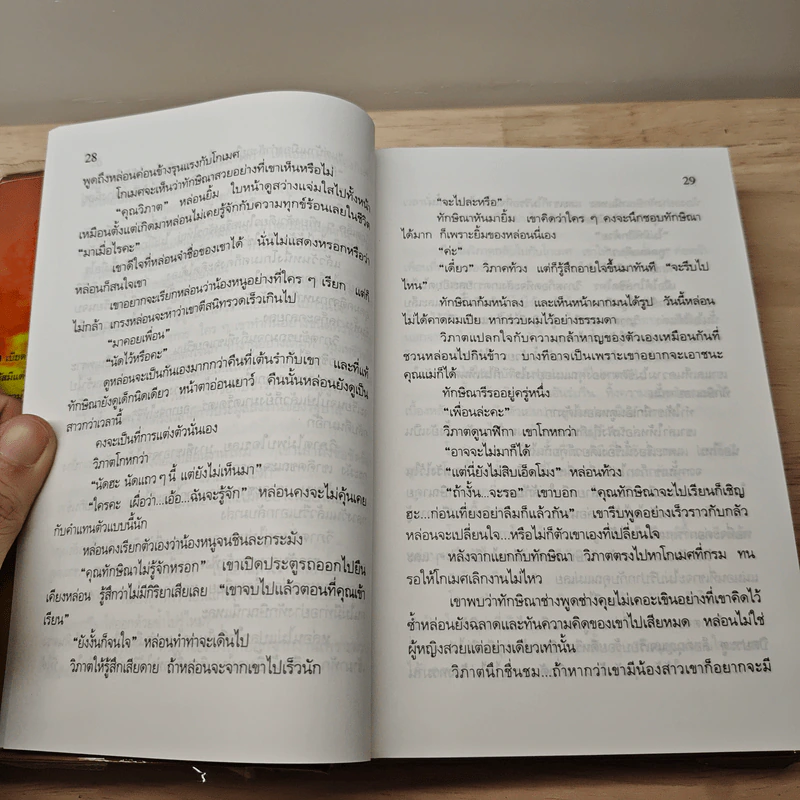 28
พูดถึงหล่อนค่อนข้างรุนแรงกับโกเมศ
โกเมศจะเห็นว่าทักษิณาสวยอย่างที่เขาเห็นหรือไม่
“คุณวิภาต” หล่อนยิ้ม ใบหน้าดูสว่างแจ่มใสไปทั้งหน้า
เหมือนตั้งแต่เกิดมาหล่อนไม่เคยรู้จักกับความทุกข์ร้อนเลยในชีวิต
“มาเมื่อไรคะ”
เขาดีใจที่หล่อนจำชื่อของเขาได้ นั่นไม่แสดงหรอกหรือว่า
หล่อนก็สนใจเขา
เขาอยากจะเรียกหล่อนว่าน้องหนูอย่างที่ใคร ๆ เรียก แต่ก็
ไม่กล้า เกรงหล่อนจะหาว่าเขาตีสนิทรวดเร็วเกินไป
“มาคอยเพื่อน”
“นัดไว้หรือคะ”
ดูหล่อนจะเป็นกันเองมากกว่าคืนที่เต้นรำกับเขา และที่แท้
ทักษิณายังดูเด็กนิดเดียว หน้าตาอ่อนเยาว์ คืนนั้นหล่อนยังดูเป็น
สาวกว่าเวลานี้
คงจะเป็นที่การแต่งตัวนั่นเอง
วิภาตโกหกว่า
“นัดฮะ นัดแถว ๆ นี้ แต่ยังไม่เห็นมา”
“ใครคะ เผื่อว่า...เอ้อ...ฉันจะรู้จัก” หล่อนคงจะไม่คุ้นเคย
กับคำแทนตัวแบบนี้นัก
หล่อนคงเรียกตัวเองว่าน้องหนูจนชินละกระมัง
“คุณทักษิณาไม่รู้จักหรอก” เขาเปิดประตูรถออกไปยืน
เคียงหล่อน รู้สึกว่าไม่มีกิริยาเสียเลย “เขาจบไปแล้วตอนที่คุณเข้า
เรียน”
“ยังงั้นก็จนใจ” หล่อนทำท่าจะเดินไป
วิภาตให้รู้สึกเสียดาย ถ้าหล่อนจะจากเขาไปเร็วนัก
29
“จะไปละหรือ”
ทักษิณาหันมายิ้ม เขาคิดว่าใคร ๆ คงจะนึกชอบทักษิณา
ได้มาก ก็เพราะยิ้มของหล่อนนี่เอง
“ค่ะ”
“เดี๋ยว” วิภาตท้วง แต่ก็รู้สึกอายใจขึ้นมาทันที “จะรีบไป
ไหน”
ทักษิณาก้มหน้าลง และเห็นหน้าผากมนได้รูป วันนี้หล่อน
ไม่ได้คาดผมเปีย หากรวบผมไว้อย่างธรรมดา
วิภาตแปลกใจกับความกล้าหาญของตัวเองเหมือนกันที่
ชวนหล่อนไปกินข้าว บางทีอาจเป็นเพราะเขาอยากจะเอาชนะ
คุณแม่ก็ได้
ทักษิณารีรออยู่ครู่หนึ่ง
“เพื่อนล่ะคะ”
วิภาตดูนาฬิกา เขาโกหกว่า
“อาจจะไม่มาก็ได้”
“แต่นี่ยังไม่สิบเอ็ดโมง” หล่อนท้วง
“ถ้างั้น...จะรอ” เขาบอก “คุณทักษิณาจะไปเรียนก็เชิญ
ฮะ...ก่อนเที่ยงอย่าลืมก็แล้วกัน” เขารีบพูดอย่างเร็วราวกับกลัว
หล่อนจะเปลี่ยนใจ...หรือไม่ก็ตัวเขาเองที่เปลี่ยนใจ
หลังจากแยกกับทักษิณา วิภาตตรงไปหาโกเมศที่กรม ทน
รอให้โกเมศเลิกงานไม่ไหว
เขาพบว่าทักษิณาช่างพูดช่างคุยไม่เคอะเขินอย่างที่เขาคิดไว้
ซ้ำหล่อนยังฉลาดและทันความคิดของเขาไปเสียหมด หล่อนไม่ใช่
ผู้หญิงสวยแต่อย่างเดียวเท่านั้น
วิภาตนึกชื่นชม...ถ้าหากว่าเขามีน้องสาวเขาก็อยากจะมี